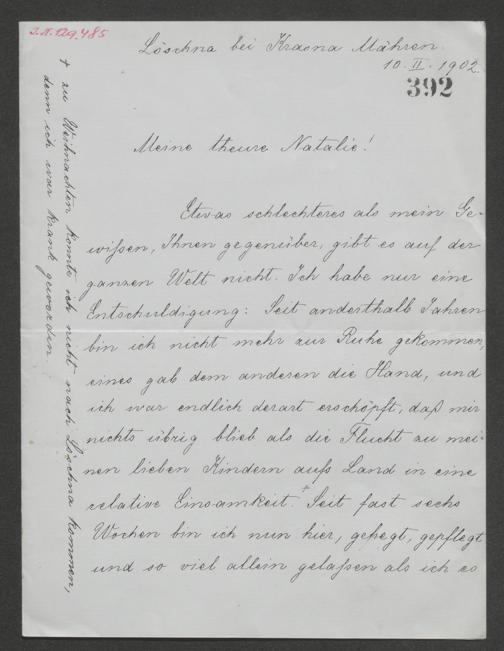 J.N. 129.485
Löschna bei Krasna Mähren.
10. II. 1902.
392
Meine theure Natalie!
Etwas schlechteres als mein Ge-
wißen, Ihnen gegenüber, gibt es auf der
ganzen Welt nicht. Ich habe nur eine
Entschuldigung: Seit anderthalb Jahren
bin ich nicht mehr zur Ruhe gekommen,
eines gab dem anderen die Hand, und
ich war endlich derart erschöpft, daß mir
nichts übrig blieb als die Flucht zu mei-
nen lieben Kindern aufs Land in eine
relative Einsamkeit.+ Seit fast sechs
Wochen bin ich nun hier, gehegt, gepflegt
und so viel allein gelaßen als ich es
+ zu Weihnachten konnte ich nicht nach Löschna kommen,
denn ich war krank geworden.